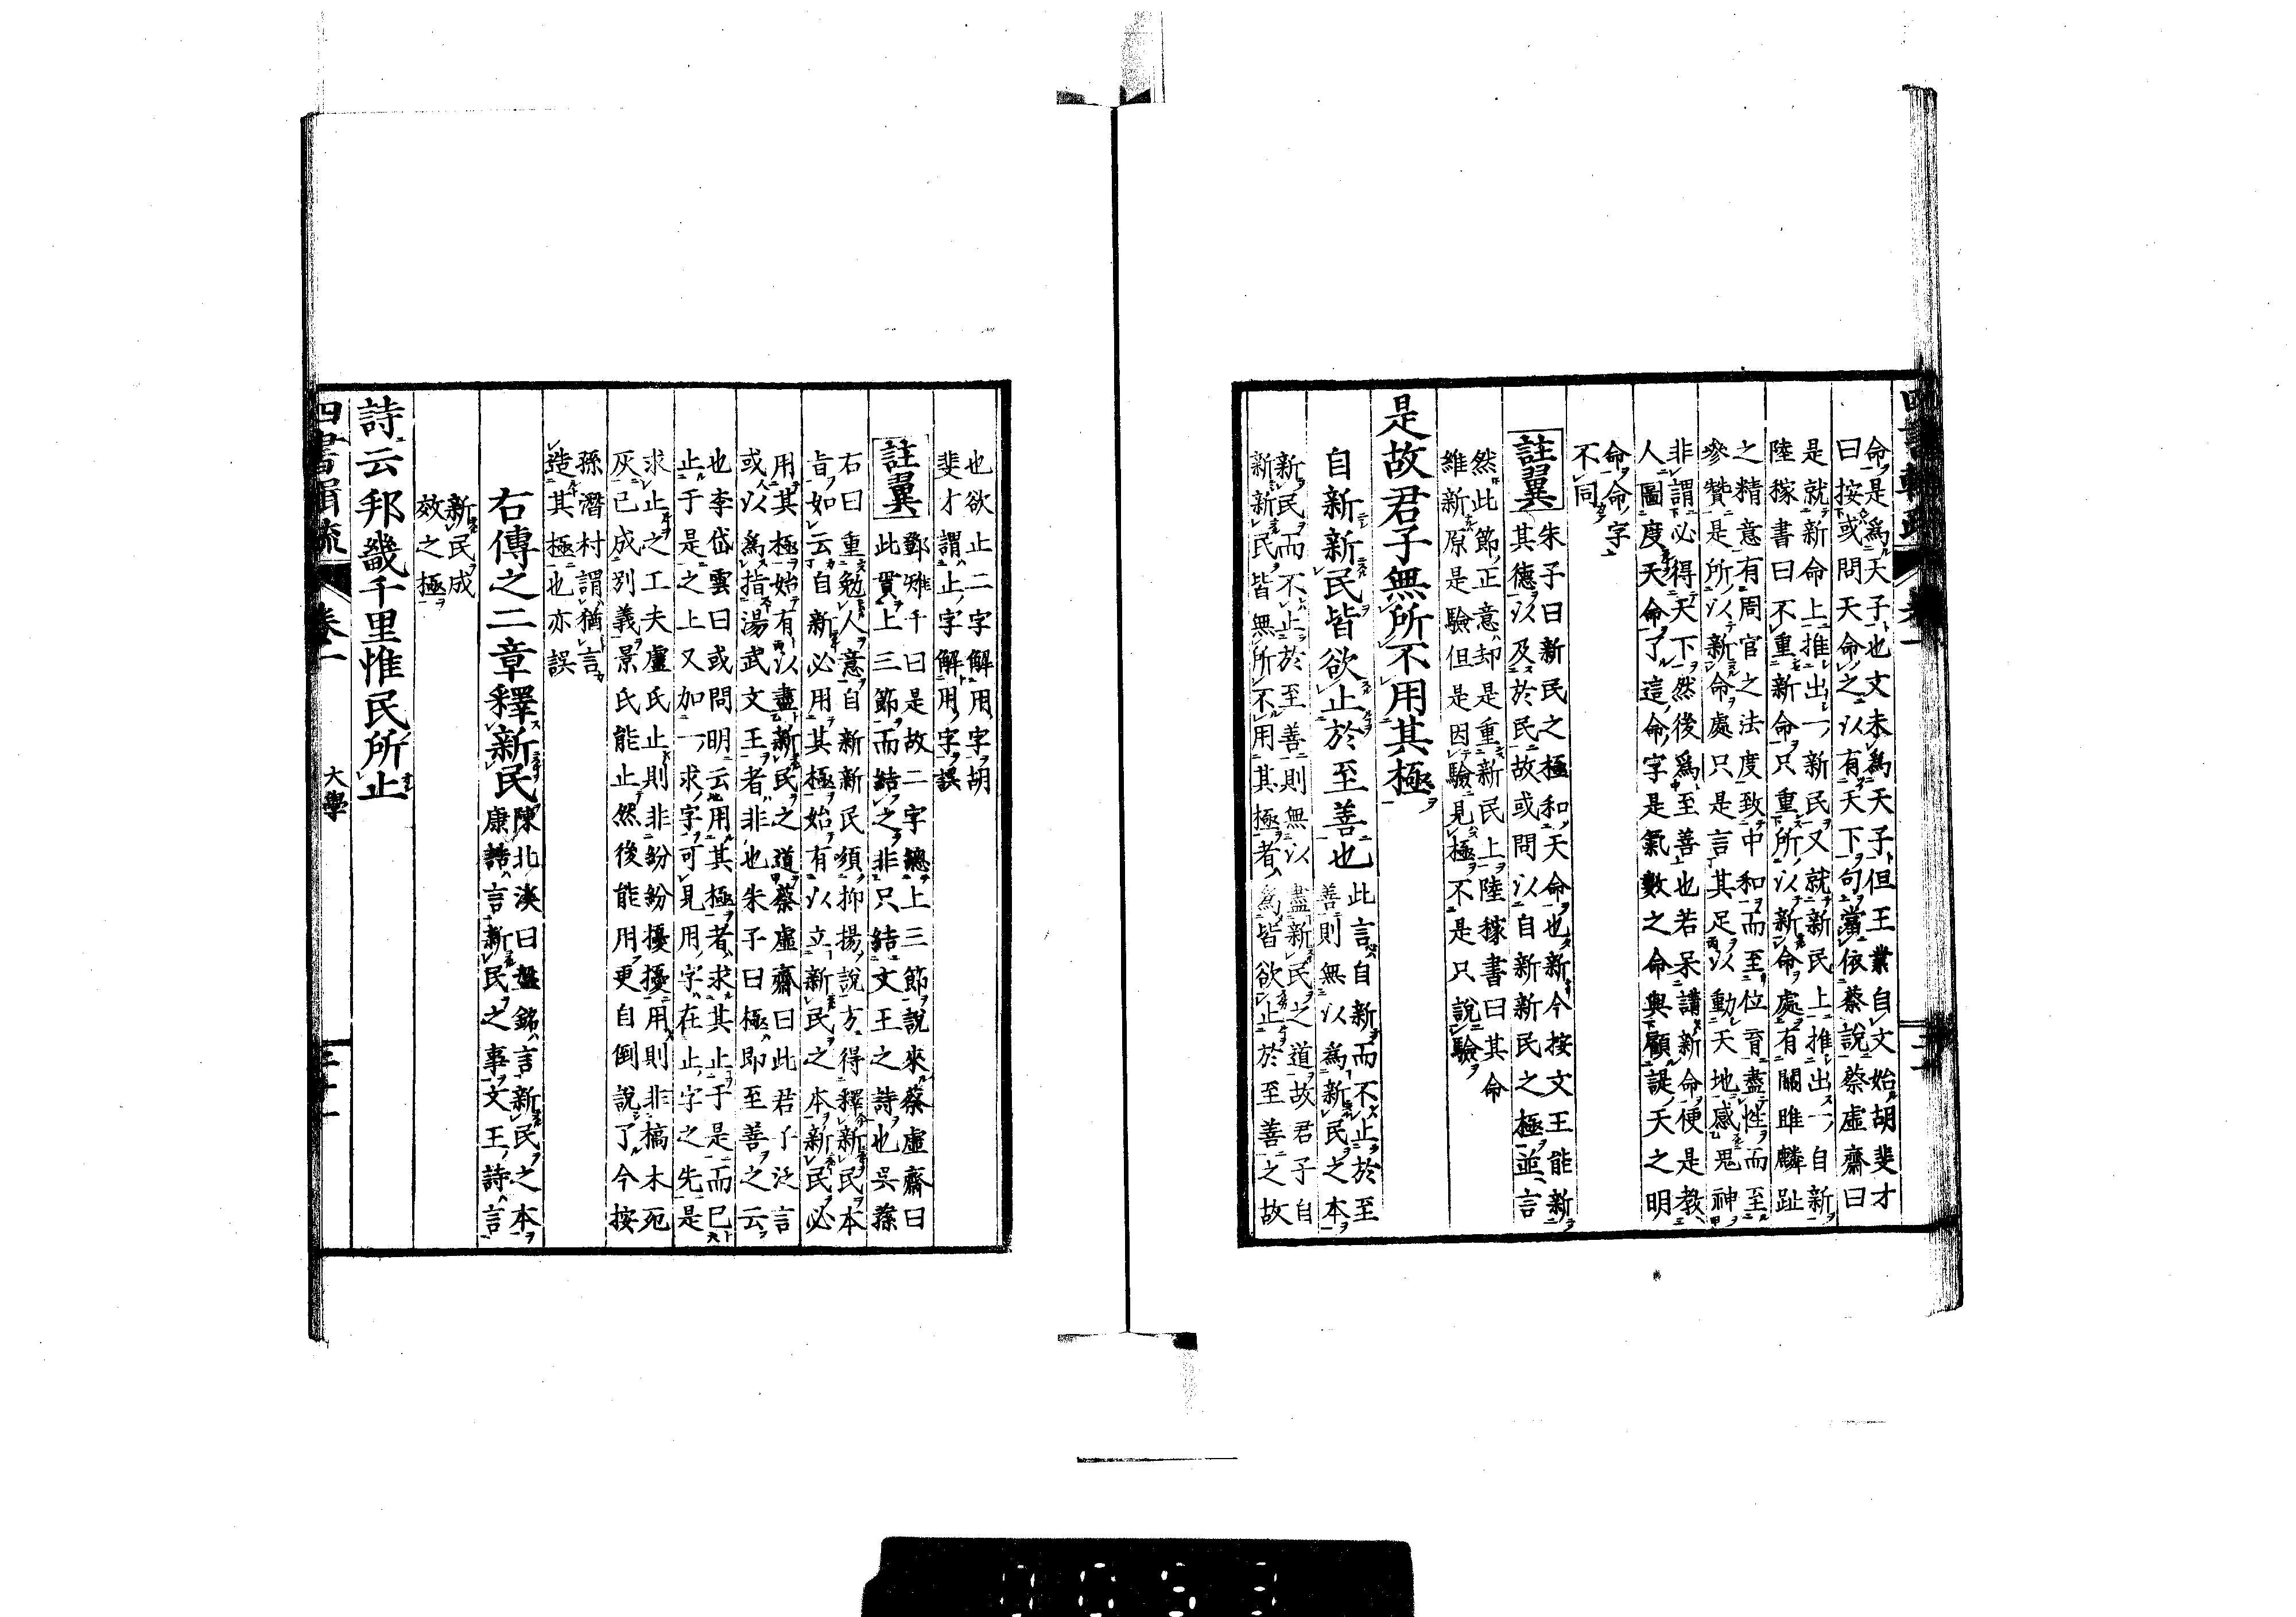 命是爲天子也文未爲天子但王業自文始胡斐才
曰按或問天命之以有天下句當依蔡說蔡虛齋曰
是就新命上推出一新民又就新民上推出一自新
陸稼書曰不重新命只重所以新命處有關雎麟趾
之精意有周官之法度致中和而至位育盡性而至
參贊是所以新命處只是言其足以動天地感鬼神
非謂必得天下然後爲至善也若呆講新命便是教
人圖度天命了這命字是氣數之命與顧諟天之明
命命字
不同
註翼
朱子曰新民之極和天命也新今按文王能新
其德以及於民故或問以自新新民之極並言
然此節正意却是重新民上陸稼書曰其命
維新原是驗但是因驗見極不是只說驗
是故君子無所不用其極
自新新民皆欲止於至善也
此言自新而不止於至
善則無以爲新民之本
新民而不止於至善則無以盡新民之道故君子自
新新民皆無所不用其極者爲皆欲止於至善之故
也欲止二字解用字胡
斐才謂止字解用字誤
註翼
鄭雉千曰是故二字總上三節說來蔡虛齋曰
此貫上三節而結之非只結文王之詩也吳蓀
右曰重勉人意自新新民須抑揚說方得釋新民本
旨如云自新必用其極始有以立新民之本新民必
用其極始有以盡新民之道蔡虛齋曰此君子泛言
或以爲指湯武文王者非也朱子曰極即至善之云
也李岱雲曰或問明云用其極者求其止于是而已
止于是之上又加一求字可見用字在止字之先是
求止之工夫盧氏止則非紛紛擾擾用則非槁木死
灰已成別義景氏能止然後能用更自倒說了今按
孫潛村謂猶言
造其極也亦誤
右傳之二章釋新民
陳北溪曰盤銘言新民之本
康誥言新民之事文王詩言
新民成
效之極
詩云邦畿千里惟民所止
四書輯疏
卷一
大學